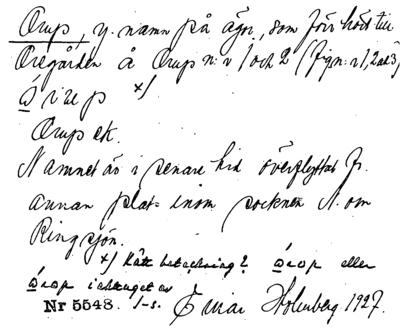 Orup, y. namn på ägor, som förr hört till
Oregården å Orup n:r 1 och 2 (Jfr n:r 1, 2 ad 3)
x)
Orup ek.
Namnet är i senare tid överflyttat fr.
annan plats inom socknen N. om
Ringsjön.
x) Rätt beteckning? eller
iakttaget av
Nr 5548. I-s. Einar Holmberg 1927.